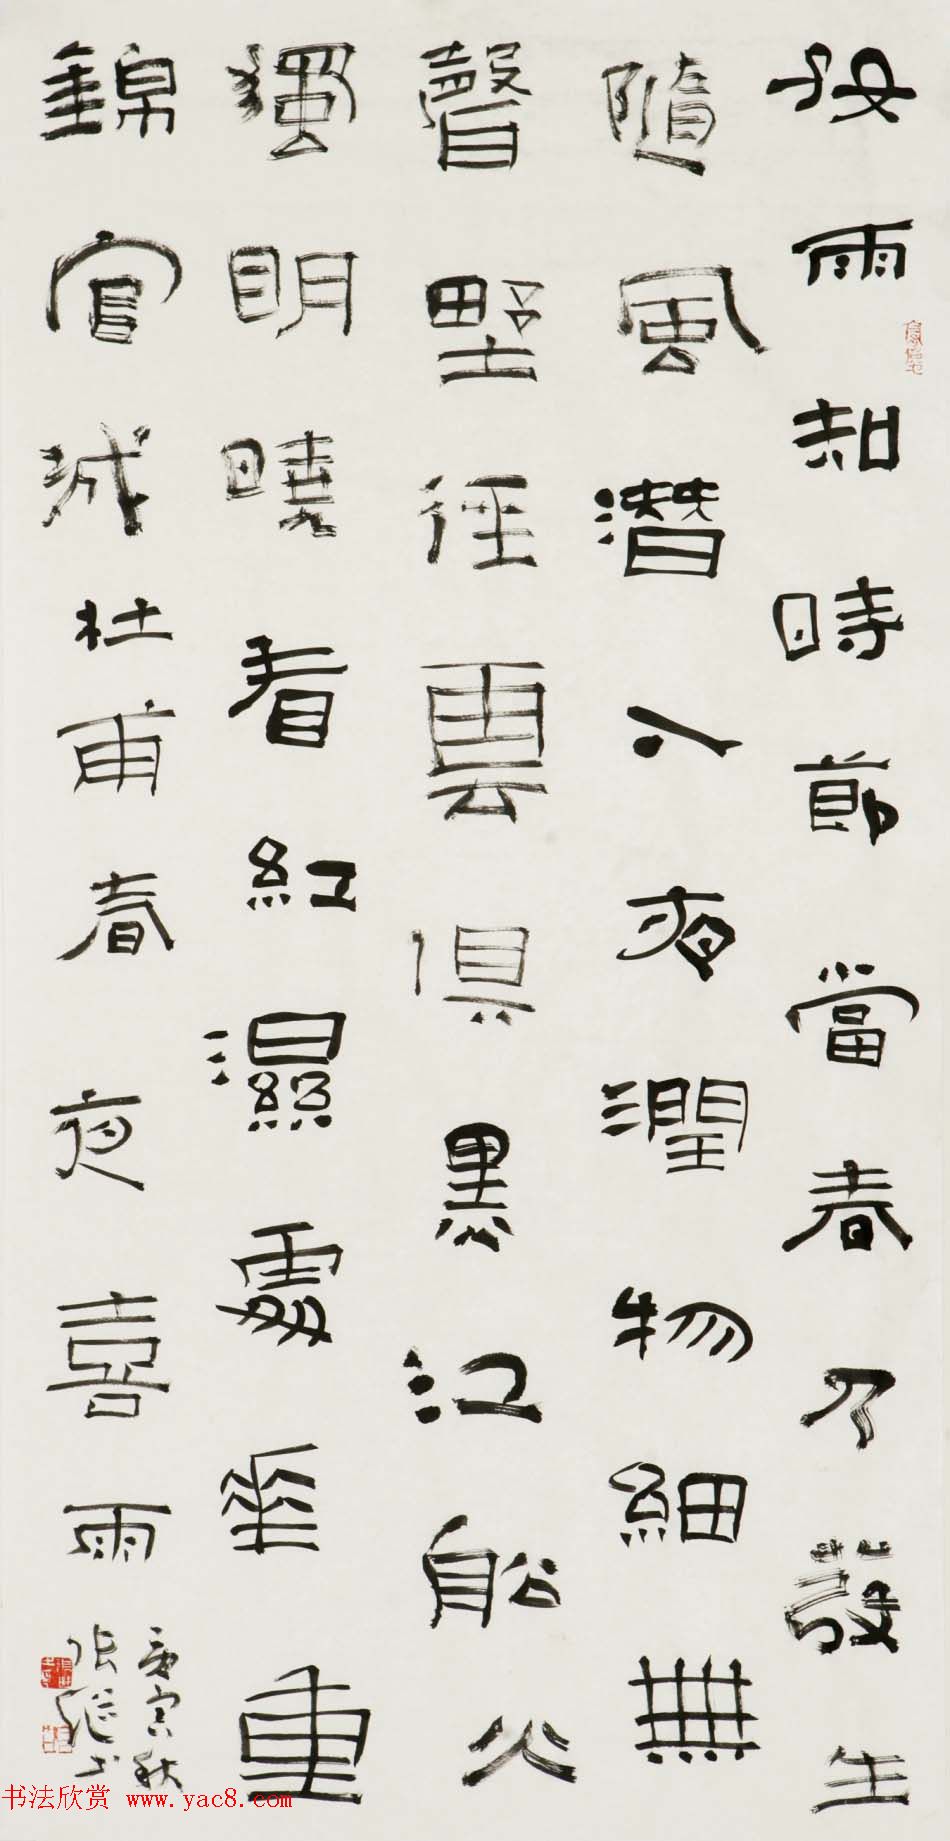 好雨知時節當春乃發生
隨風潛入夜潤物細無
聲野徑雲俱黑江船火
獨明曉看紅濕處花重
錦官城杜甫春夜喜雨
庚寅秋
張繼書
书法欣赏 www.yac8.com